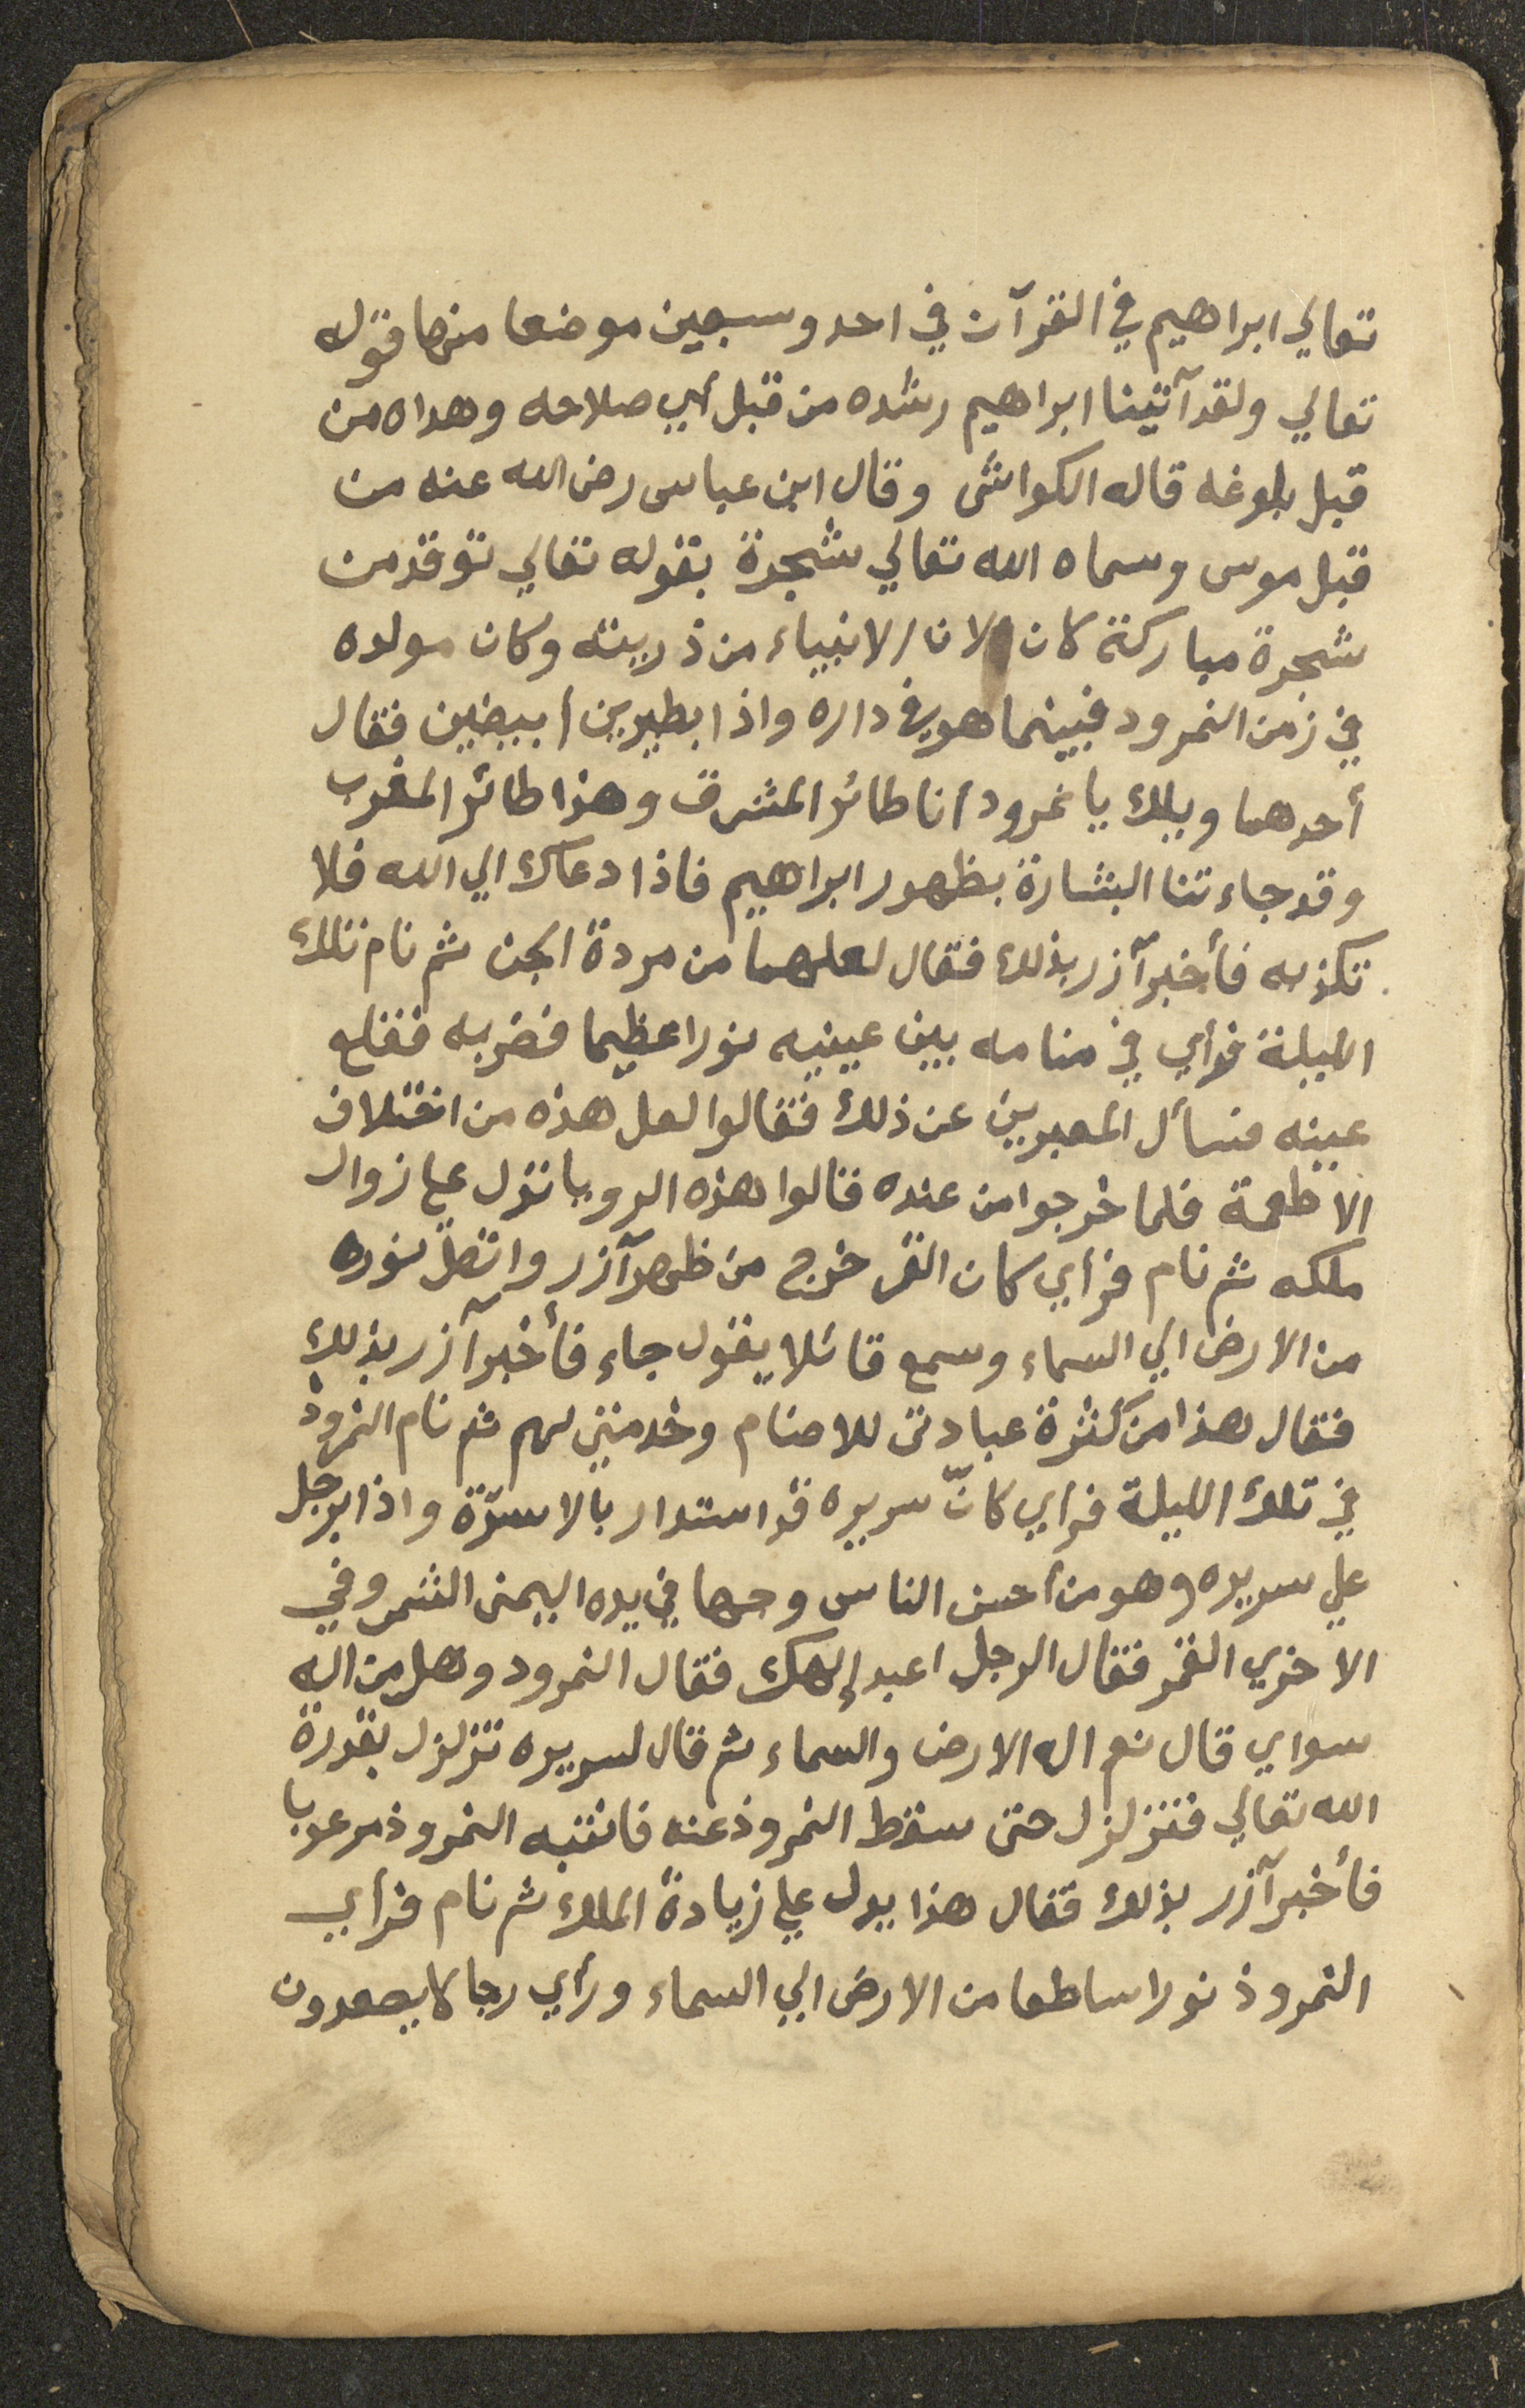 تعالي ابراهيم في القرآن في احد وسبعين موضعا منها قوله
تعالي ولقد آتينا ابراهيم رشده من قبل أي صلاحه وهداه من
قبل بلوغه قاله الكواشى وقال ابن عباس رضى الله عنه من
قبل موسى وسماه الله تعالي شجرة بقوله تعالي توقد من
شجرة مباركة كان لان الانبياء من ذريته وكان مولده
في زمن النمرود فبينما هو في داره واذا بطيرين أبيضين فقال
أحدهما ويلك يا نمرود أنا طائر المشرق وهذا طائر المغرب
وقد جاءتنا البشارة بظهور ابراهيم فاذا دعاك الي الله فلا
تكذبه فأخبر آزر بذلك فقال لعلهما من مردة الجن ثم نام تلك
الليلة فرأي في منامه بين عينيه نورا عظيما فضربه فقلع
عينه فسأل المعبرين عن ذلك فقالوا لعل هذه من اختلاف
الاطعمة فلما خرجوا من عنده قالوا هذه الرويا تدل علي زوال
ملكه ثم نام فرأي كان القمر خرج من ظهر آزر واتصل نوره
من الارض الي السماء وسمع قائلا يقول جاء فأخبر آزر بذلك
فقال هذا من كثرة عبادتى للاصنام وخدمتي لهم ثم نام النمروذ
في تلك الليلة فرأي كانّ سريره قد استدار بالاسرّة واذا برجل
علي سريره وهو من أحسن الناس وجها في يده اليمنى الشمس وفي
الاخري القمر فقال الرجل اعبد إلهك فقال النمرود وهل من اله
سواي قال نعم اله الارض والسماء ثم قال لسريره تزلزل بقدرة
الله تعالي فتزلزل حتى سقط النمروذ عنه فانتبه النمروذ مرعوبا
فأخبر آزر بذلك فقال هذا يدل علي زيادة الملك ثم نام فرأي
النمروذ نورا ساطعا من الارض الي السماء ورأي رجالا يصعدون